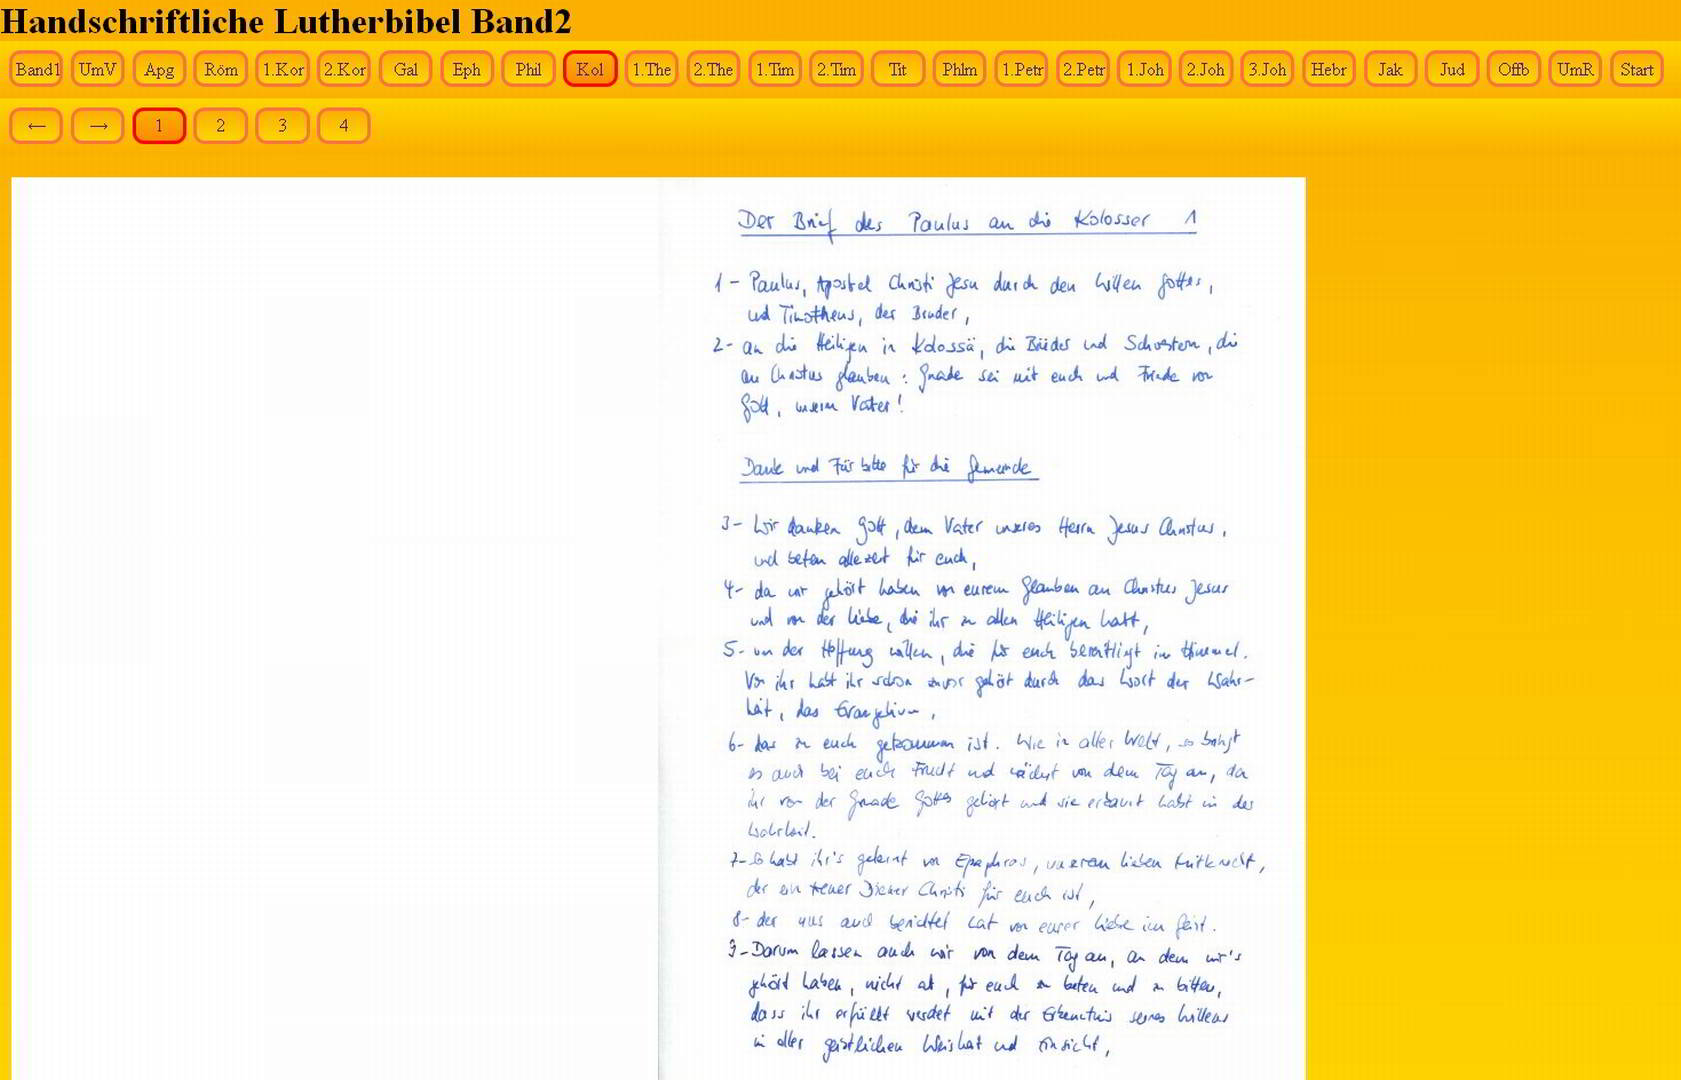 Handschriftliche Lutherbibel Band2
Band1 UmV Apg Röm 1.Kor 2.Kor Gal Eph Phil Kol 1.The 2.The 1.Tim 2.Tim Tit Phlm 1.Petr 2.Petr 1.Joh 2.Joh 3.Joh Hebr Jak Jud Offb UmR Start
← → 1 2 3 4
Der Brief des Paulus an die Kolosser 1
1- Paulus, Apostel Christi Jesu durch den Willen Gottes,
und Timotheus, der Bruder,
2- an die Heiligen in Kolossä, die Brüder und Schwestern, die
an Christus glauben: Gnade sei mit euch und Friede von
Gott, unserm Vater!
Dank und Fürbitte für die Gemeinde
3- Wir danken Gott, dem Vater unseres Herrn Jesus Christus,
und beten allezeit für euch,
4- da wir gehört haben von eurem Glauben an Christus Jesus
und von der Liebe, die ihr zu allen Heiligen habt,
5- um der Hoffnung willen, die für euch bereitliegt im Himmel.
Von ihr habt ihr schon zuvor gehört durch das Wort der Wahr-
heit, das Evangelium,
6- das zu euch gekommen ist. Wie in aller Welt, so bringt
es auch bei euch Frucht und wächst von dem Tag an, da
ihr von der Gnade Gottes gehört und sie erkannt habt in der
Wahrheit.
7- So habt ihr's gelernt von Epaphras, unserem lieben Mitknecht,
der ein treuer Diener Christi für euch ist,
8- der uns auch berichtet hat von eurer Liebe im Geist.
9- Darum lassen auch wir von dem Tag an, an dem wir's
gehört haben, nicht ab, für euch zu beten und zu bitten,
dass ihr erfüllt werdet mit der Erkenntnis seines Willens
in aller geistlichen Weisheit und Einsicht,